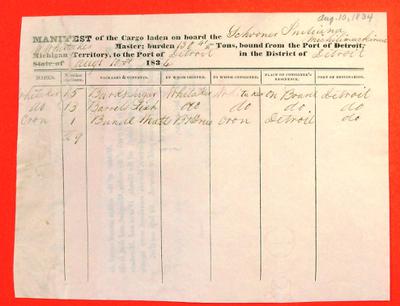 Aug. 10, 1834
MANIFEST of the Cargo laden on board the Schooner Indiana
Whitaker Master; burden Tons, bound from the Port of Detroit, Michilimackinac
Michigan Territory, to the Port of Detroit in the District of Detroit
State of Augt 10th 183
MARKS. PACKAGES & CONTENTS. BY WHOM SHIPPED. TO WHOM CONSIGNED. PLACE OF CONSIGNEE'S RESIDENCE. PORT OF DESTINATION.
Whitaker 15 Whitaker On Board Detroit
do 13 Barrels Fish do do do do
Cron 1 Matts Cron Detroit do
29